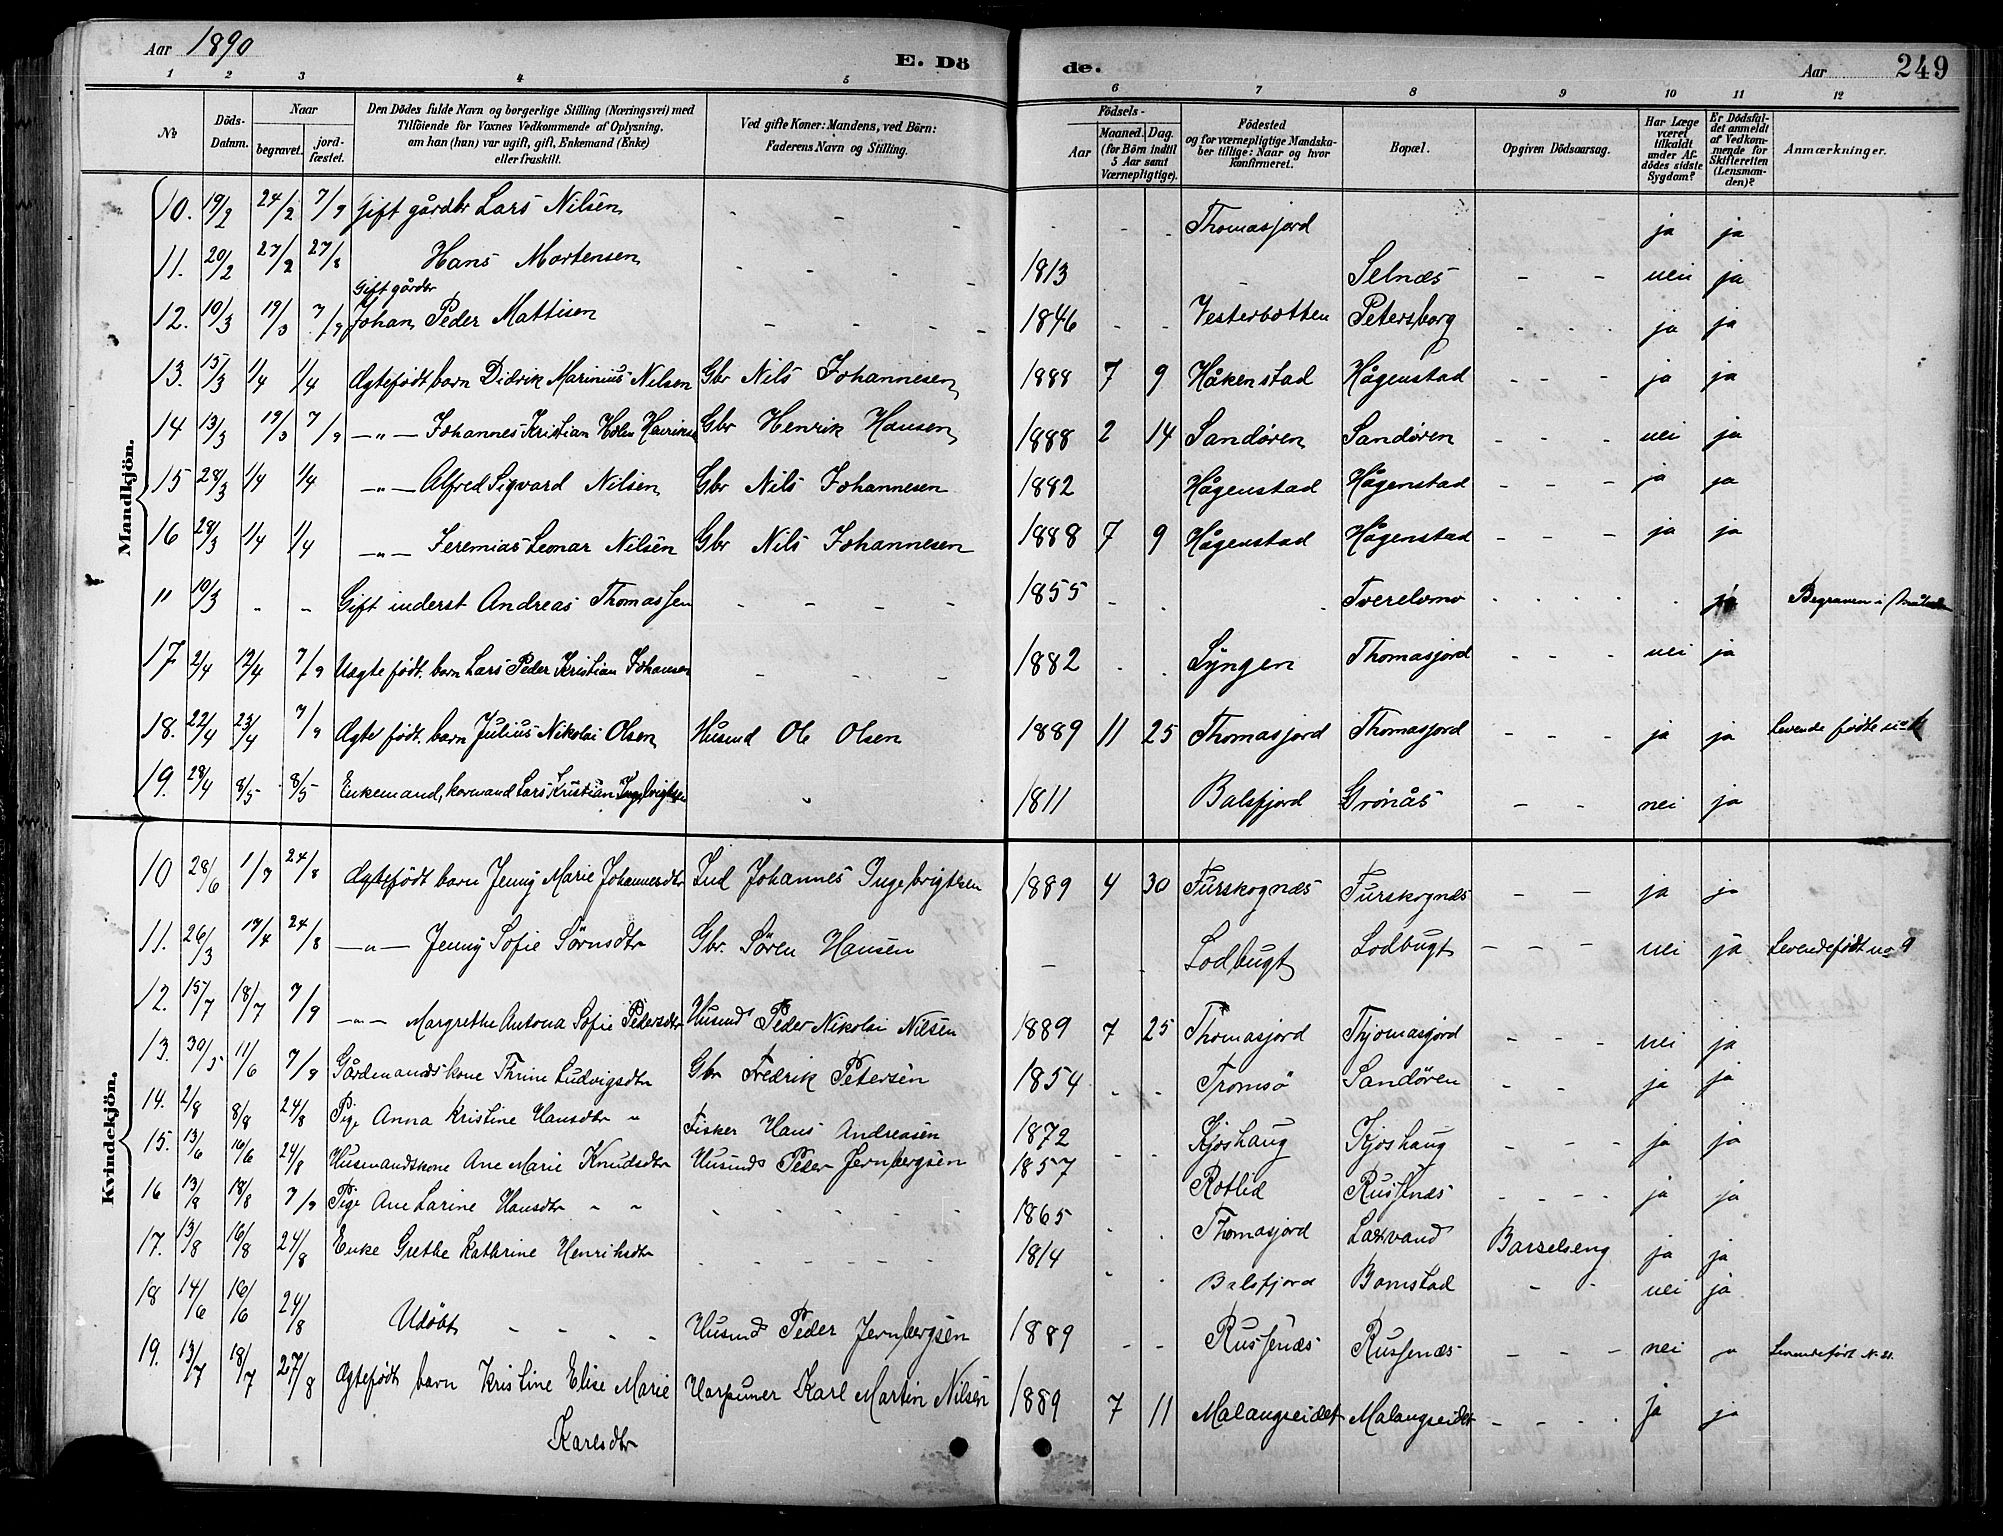 Aar 1890
E. Dö
de.
Aar
249
1 2 3 4 5 6 7 8 9 10 11 12
No
Döds-Datum.
Naar
begravet.
jord-fæstet.
Den Dödes fulde Navn og borgerlige Stilling (Næringsvei) med
Tilföiende for Voxnes Vedkommende af Oplysning,
om han (hun) var ugift, gift, Enkemand (Enke)
eller fraskilt.
Ved gifte Koner: Mandens, ved Börn:
Faderens Navn og Stilling.
Födsels-
Aar
Maaned. Dag.
(for Börn indtil
5 Aar samt
Værnepligtige).
Födested
og for værnepligtige Mandska-
ber tillige: Naar og hvor
konfirmeret.
Bopæl.
Opgiven Dödsaarsag.
Har Læge
været
tilkaldt
under Af-
dödes sidste
Sygdom?
Er Dödsfal-
det anmeldt
af Vedkom-
mende for
Skifteretten
(Lensman-
den)?
Anmærkninger.
Mandkjön.
10. 19/2 24/2 7/9 Gift gårdbr Lars Nilsen - - - - - - Thomasjord ja ja
11. 20/2 27/2 27/8 Hans Mortensen - - - - - 1813 - Selnæs - - nei ja
Gift gårdbr
12. 10/3 19/3 7/9 Johan Peder Mattisen - - - - - 1846 - - Vesterbotten Petersborg - - - ja ja
13. 15/3 1/4 1/4 Ægtefødt barn Didrik Marinius Nilsen Gbr Nils Johannesen 1888 7 9 Håkenstad Hågenstad - - - ja ja
14 13/3 19/3 7/9 -"- Johannes Kristian Holm Henriksen Gbr Henrik Hansen 1888 2 14 Sandøren Sandøren - - - nei ja
15 28/3 1/4 1/4 -"- Alfred Sigvard Nilsen Gbr Nils Johannesen 1882 Hågenstad Hågenstad - - - ja ja
16 28/3 1/4 1/4 -"- Jeremias Leonar Nilsen Gbr Nils Johannesen 1888 7 9 Hågenstad Hågenstad - - - ja ja
" 10/3 - - Gift inderst Andreas Thomassen - - - - 1855 - - Tverelvmo - - - - ja Begraven i
17. 2/4 12/4 7/9 Uægtefødt. barn Lars Peder Kristian Johansen - - - 1882 - - Lyngen Thomasjord - - - nei ja
18. 22/4 23/4 7/9 Ægtefødt. barn Julius Nikolai Olsen Husmd Ole Olsen 1889 11 25 Thomasjord Thomasjord - - - ja ja Levende fødte no
19. 28/4 8/5 8/5 Enkemand, kormand Lars Kristian Ingebrigtsen " 1811 Balsfjord Grønås - - nei ja
Kvindekjön.
10 28/6 1/7 24/8 Ægtefødt barn Jenny Marie Johannesdtr Ind Johannes Ingebrigtsen 1889 4 30 Furskognæs Furskognæs - - ja ja
11. 26/3 17/4 24/8 -"- Jenny Sofie Sørnsdtr Gbr. Søren Hansen - - Lodbugt Lodbugt - - - nei ja Levendefødt no 9
12. 15/7 18/7 7/9 -"- Margrethe Antona Sofie Pedersdtr Husmd Peder Nikolai Nilsen 1889 7 25 Thomasjord Thjomasjord - - - nei ja
13. 30/5 11/6 7/9 Gårdmandskone Thrine Ludvigsdtr Gbr Fredrik Petersen 1854 - - Tromsø Sandøren - - ja ja
14. 2/8 8/8 24/8 Pige Anna Kristine Hansdtr " Fisker Hans Andreasen 1872 Kjoshaug Kjoshaug - - - ja ja
15. 13/6 16/6 24/8 Husmandskone Ane Marie Knudsdtr Husmds Peder Jernbergsen 1857 - - Rotlid Russenæs - - - - ja ja
16 13/8 18/8 7/9 Pige Ane Larine Hansdtr " " - - - - - 1865 - - Thomasjord Laxvand Barselseng ja ja
17. 13/8 16/8 24/8 Enke Grethe Kathrine Henriksdtr - - - - - - 1814 - - Balsfjord Bomstad - - nei ja
18 14/6 16/6 24/8 Udøbt - - - - Husmd Peder Jernbergsen 1889 - - Russenæs Russenæs - - - nei ja Levendefødt N. 21.
19. 13/7 18/7 27/8 Ægtefødt barn Kristine Elise Marie Harpuner Karl Martin Nilsen 1889 7 11 Malangseidet Malangseidet - - - - ja ja
Karlsdtr